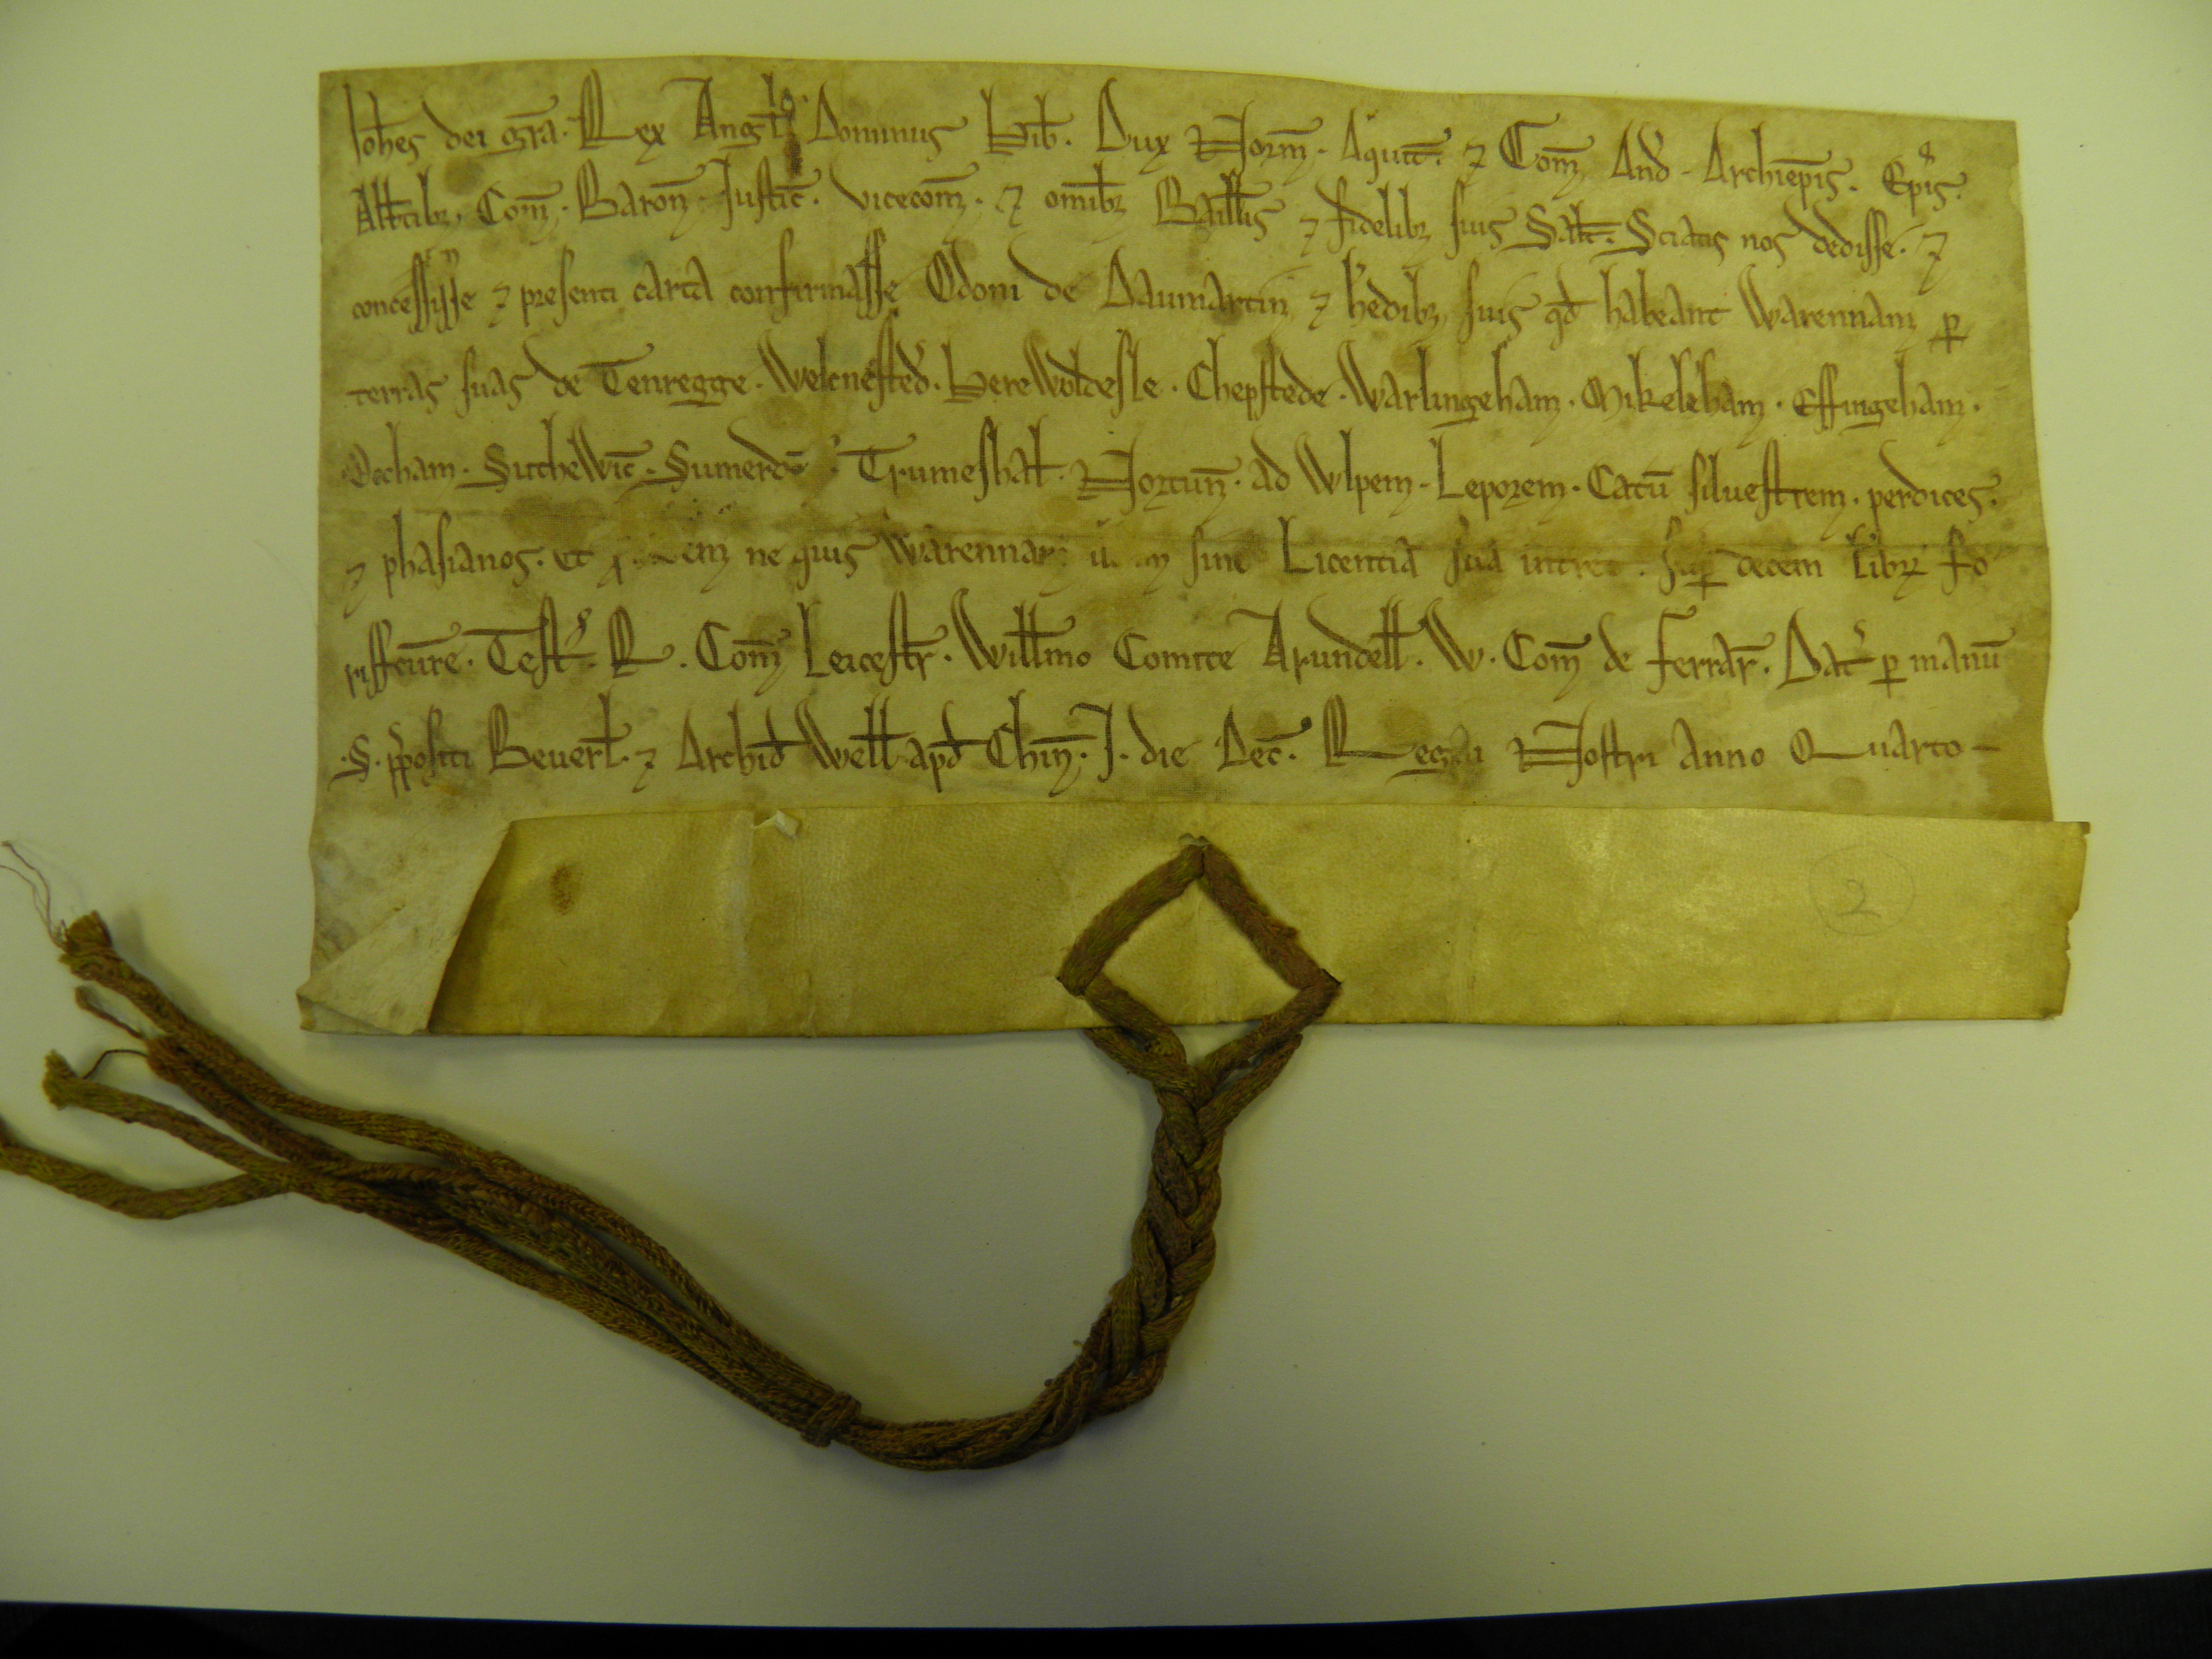 Ioh̄es dei gr̄a. Rex Angl̄. Dominus Hib̄. Dux Norm̄. Aquit̄. ⁊ Com̄ And̄. Archiep̄is. Ep̄is.
Abb̄tibꝫ. Com̄. Baron̄. Justic̄. vicecom̄. ⁊ om̄ibꝫ Baill̄is ⁊ fidelibꝫ suis Salt̄. Sciatis nos dedisse. ⁊
concessisse ⁊ presenti carta confirmasse Odoni de Daumartin ⁊ h̄edibꝫ suis qd̄ habeant Warennam ꝑ
terras suas de Tenregge. Welcnested̄. HereWoldesle. Chepstede. Warlingeham. Mikeleham. Effingeham.
Bocham. SutheWic̄. Sumerd̄. Trumeshal̄. Nortun̄. ad Wlpem. Leporem. Catū siluestrem. perdices.
⁊ phasianos. et ne quis Warennam sine Licentia sua intret. Suꝑ decem libꝝ fo
riffcure. Test̄. R. Com̄ Leicestr̄. Will̄mo Comite Arundell̄. W. Com̄ de Ferrar̄. Dat̄ ꝑ manū
.S. p̄positi Beuerl̄. ⁊ Archid̄ Well̄ apd̄ Chin̄. J. die Dec̄. Regni Nostri Anno Quarto -
2